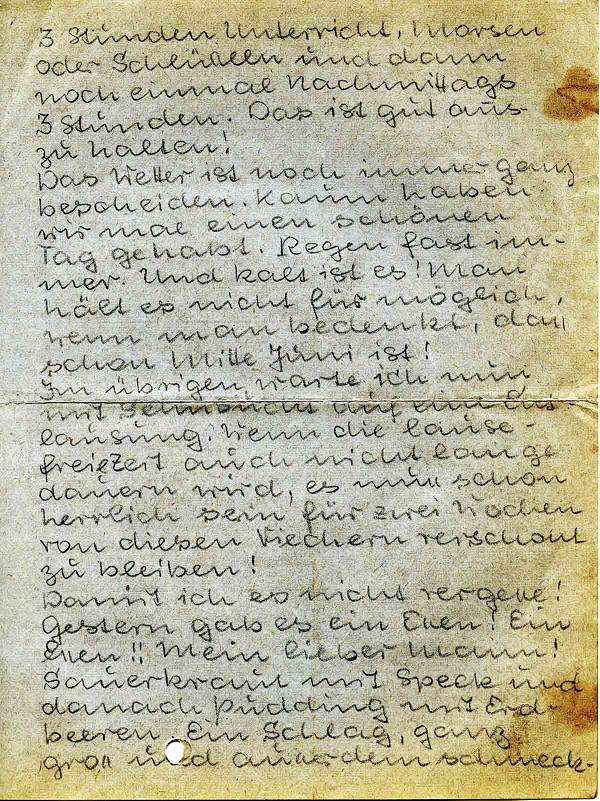 3 Stunden Unterricht, Morsen
oder Schlüsseln und dann
noch einmal Nachmittags
3 Stunden. Das ist gut aus-
zu halten!
Das Wetter ist noch immer ganz
bescheiden. Kaum haben
wir mal einen schönen
Tag gehabt. Regen fast im-
mer. Und kalt ist es! Man
hält es nicht für möglich,
wenn man bedenkt, daß
schon Mitte Juni ist!
Im übrigen warte ich nun
mit Sehnsucht auf eine Ent-
lausung. Wenn die lause-
freie Zeit auch nicht lange
dauern wird, es muß schon
herrlich sein für zwei Wochen
von diesen Viechern verschont
zu bleiben!
Damit ich es nicht vergesse!
Gestern gab es ein Essen! Ein
Essen!! Mein lieber Mann!
Sauerkraut mit Speck und
danach Pudding mit Erd-
beeren. Ein Schlag, ganz
groß und ausserdem schmeck-